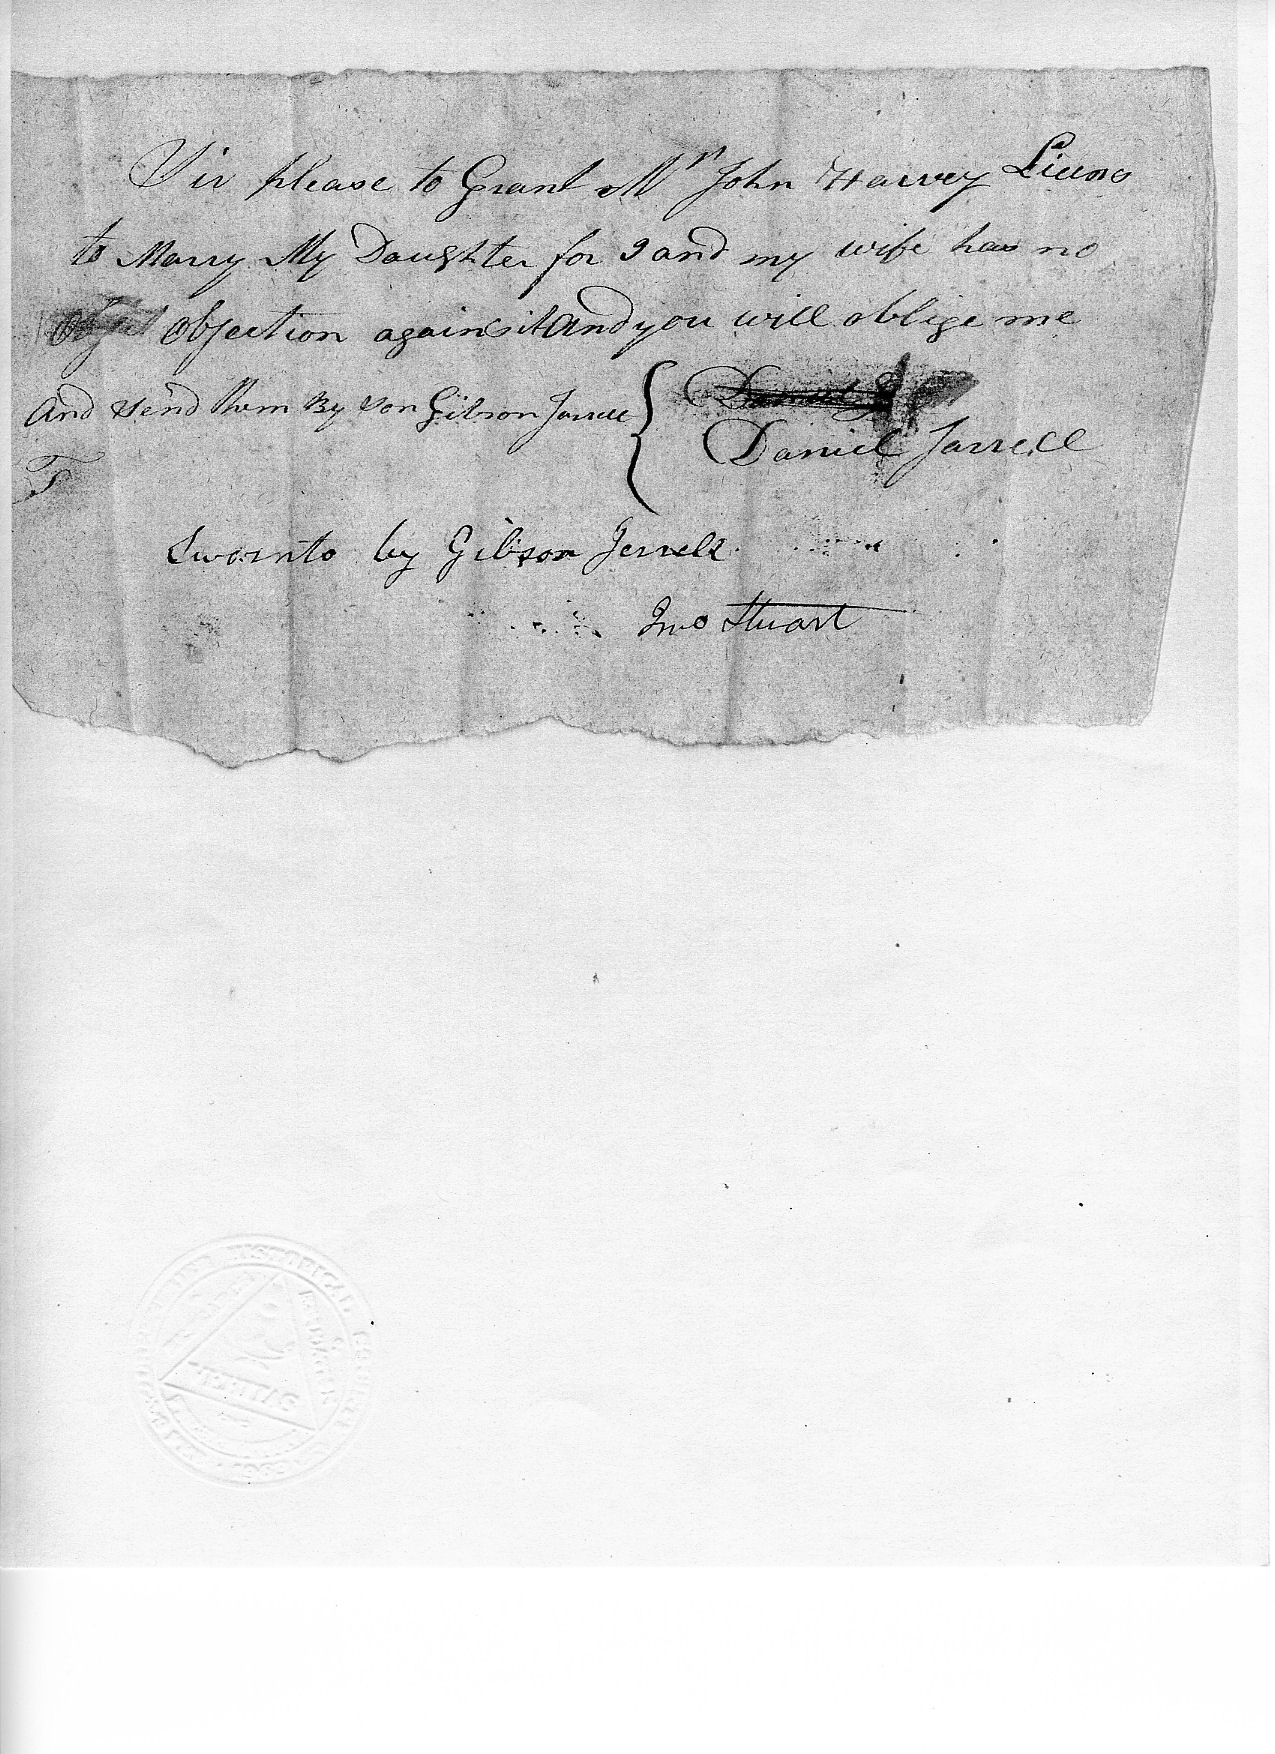 Sir please to Grant Mr John Harvey Licens
to Marry My Daughter for I and my wife has no
objection against it And you will oblige me
And send them By Son Gibson Jarrell
Daniel Jarrell
Swornto by Gibson Jerrell
Jno Stuart
HISTORICAL
VERITAS